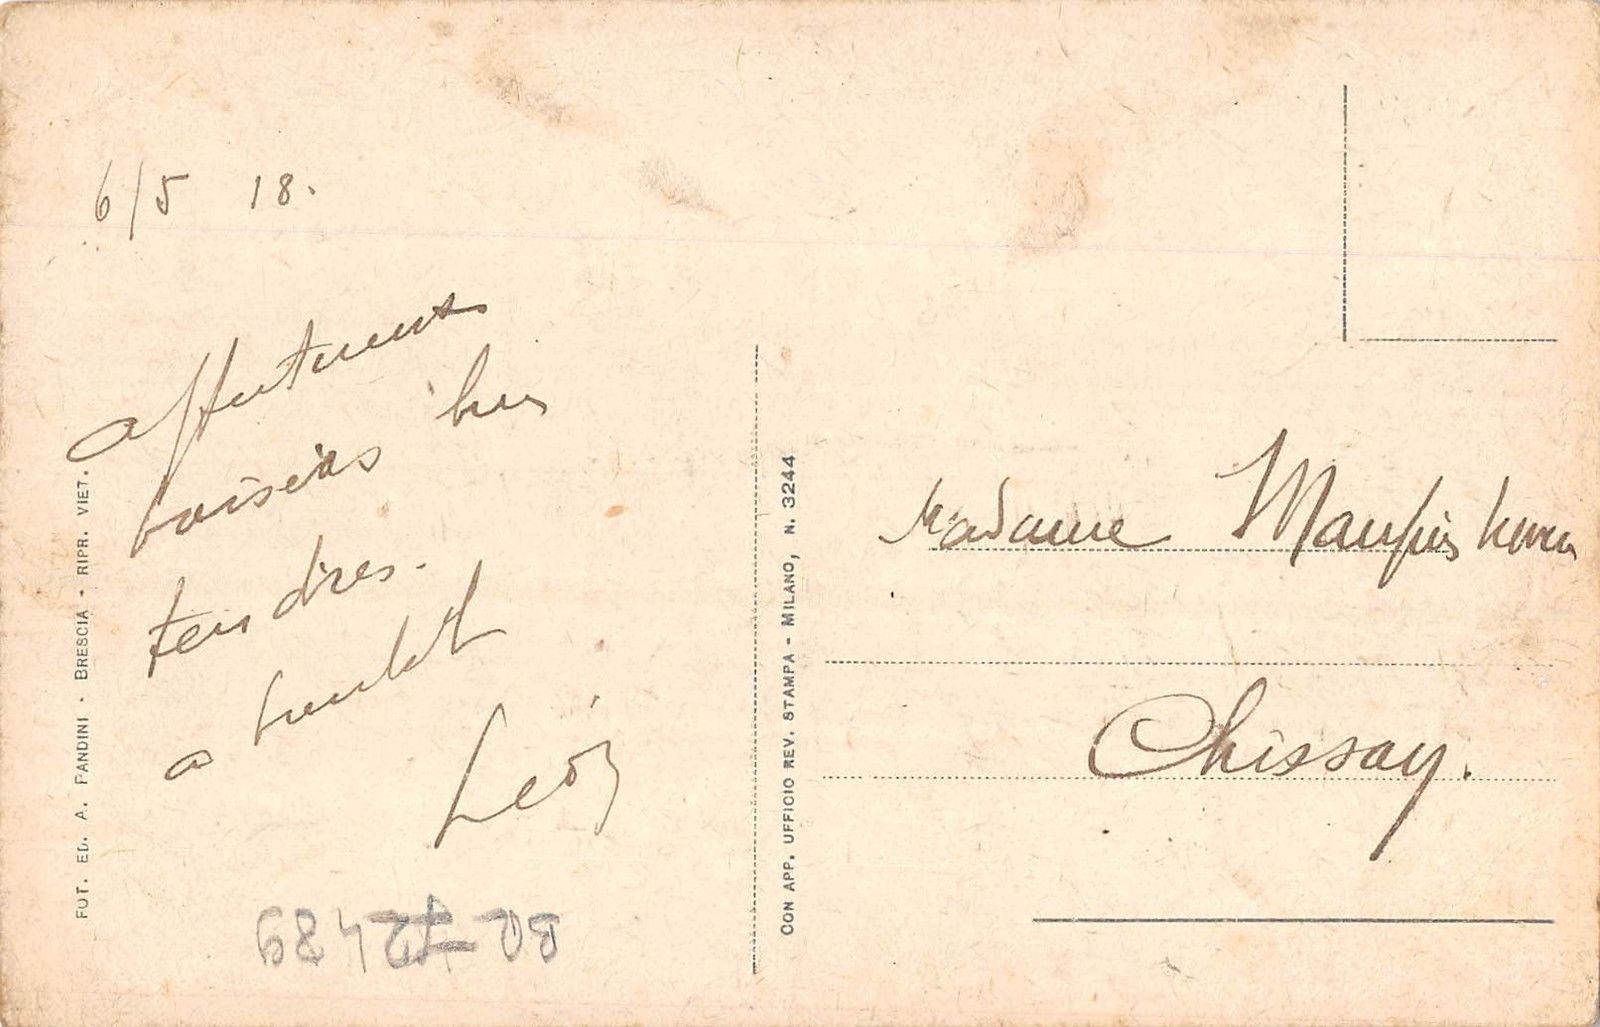 6/5 18.
affectueux
baisers bien
tendres.
a bientôt
Léon
FOT. ED. A. PANDINI · BRESCIA · RIPR. VIET.
CON APP. UFFICIO REV. STAMPA - MILANO, N. 3244
Madame
Chissay.